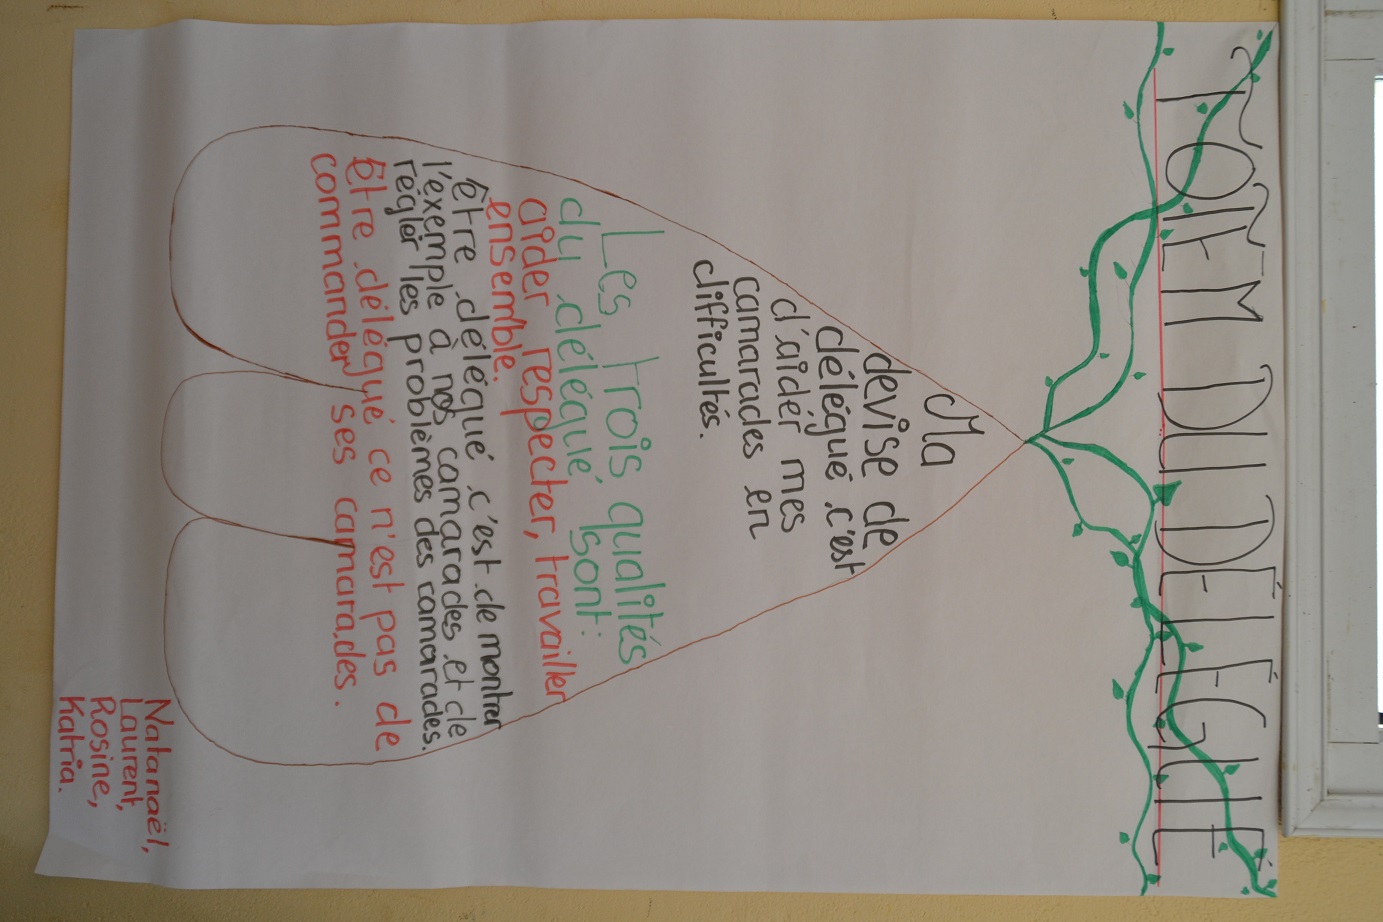 TOTEM DU DÉLÉGUÉ
Ma
devise de
délégué c'est
d'aider mes
camarades en
difficultés.
Les trois qualités
du délégué sont:
aider respecter, travailler
ensemble.
Être délégué c'est de montrer
l'exemple à nos camarades et de
régler les problèmes des camarades.
Être délégué ce n'est pas de
commander ses camarades.
Natanaël,
Laurent,
Rosine,
Katria.